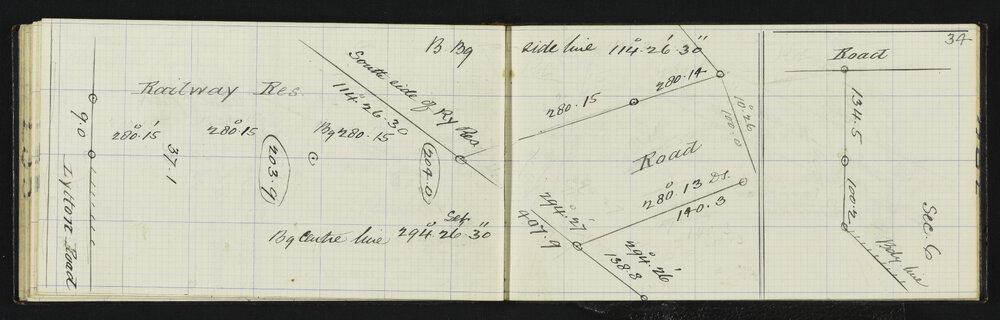 34
B Bg side line 114°.26'.30"
Road
Railway Res.
South side of Ry Res
114°.26'.30
280.14
280.15
10°.26
100.0
134.5
9.0
280.15'
280°.15
Bg 280.15
37.1
203.9
204.0
Road
280°.13 Ds.
140.3
100.2
Sec. 6
Bdy line
Lytton Road
Set
Bg Centre line 294°.26'.30"
294°.27'
407.9
294°.26'
138.8